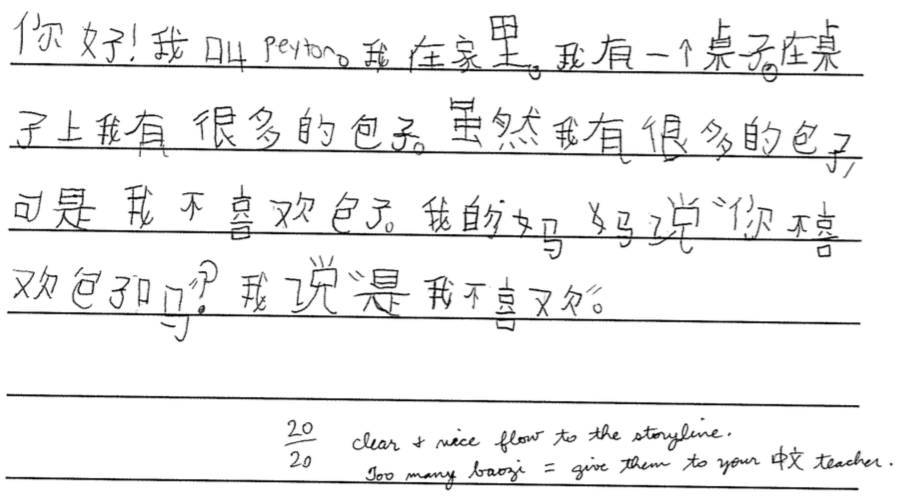 你好!我叫 peyton。我在家里。我有一个桌子。在桌
子上我有很多的包子。虽然我有很多的包子,
可是我不喜欢包子。我的妈妈说“你不喜
欢包子吗”?我说“是我不喜欢”。
20/20 clear & nice flow to the storyline.
Too many baozi = give them to your 中文 teacher.